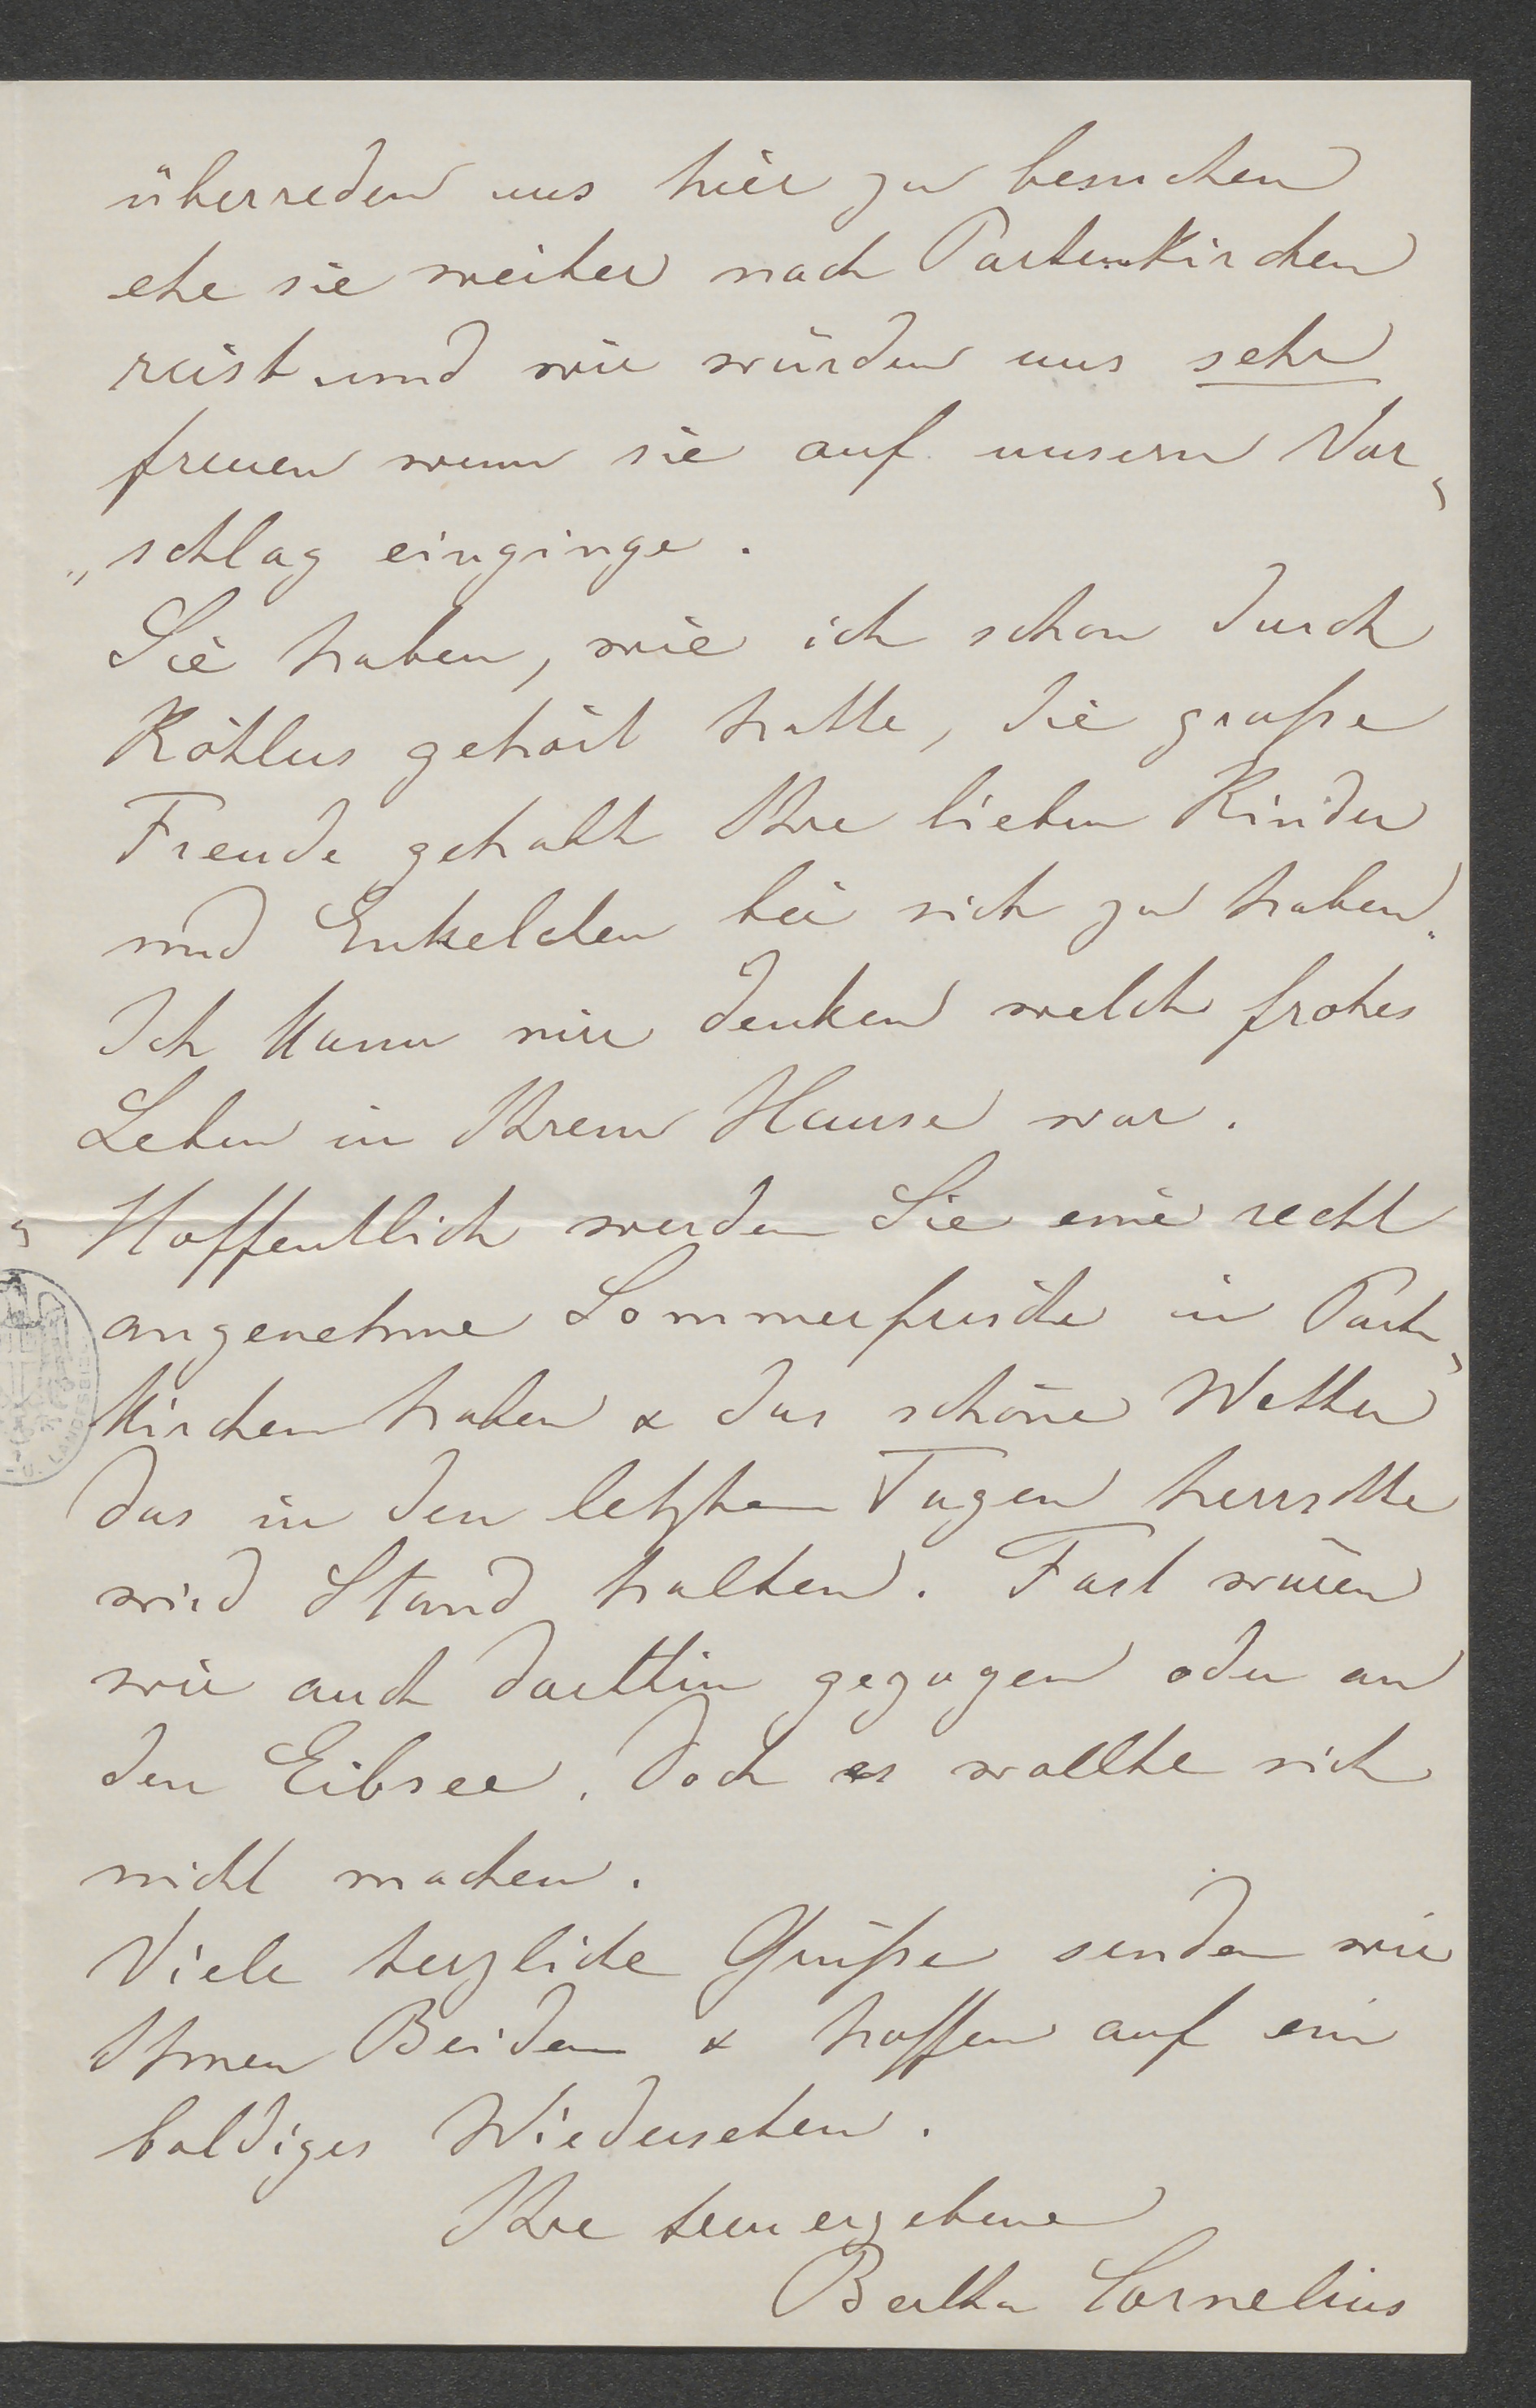 überreden uns hier zu besuchen
ehe sie weiter nach Partenkirchen
reist und wir würden uns sehr
freuen wenn sie auf unsern Vor„
„schlag einginge.
Sie haben, wie ich schon durch
Köhlers gehört hatte, die große
Freude gehabt Ihre lieben Kinder
und Enkelchen bei sich zu haben.
Ich kann mir denken welch frohes
Leben in Ihrem Hause war.
Hoffentlich werden Sie eine recht
angenehme Sommerfrische in Parten„
kirchen haben & das schöne Wetter
das in den letzten Tagen herrschte
wird Stand halten. Fast wären
wir auch dorthin gezogen oder an
den Eibsee. Doch es wollte sich
nicht machen.
Viele herzliche Grüße senden wir
Ihnen Beiden & hoffen auf ein
baldiges Wiedersehen.
Ihre treu ergebene
Bertha Cornelius